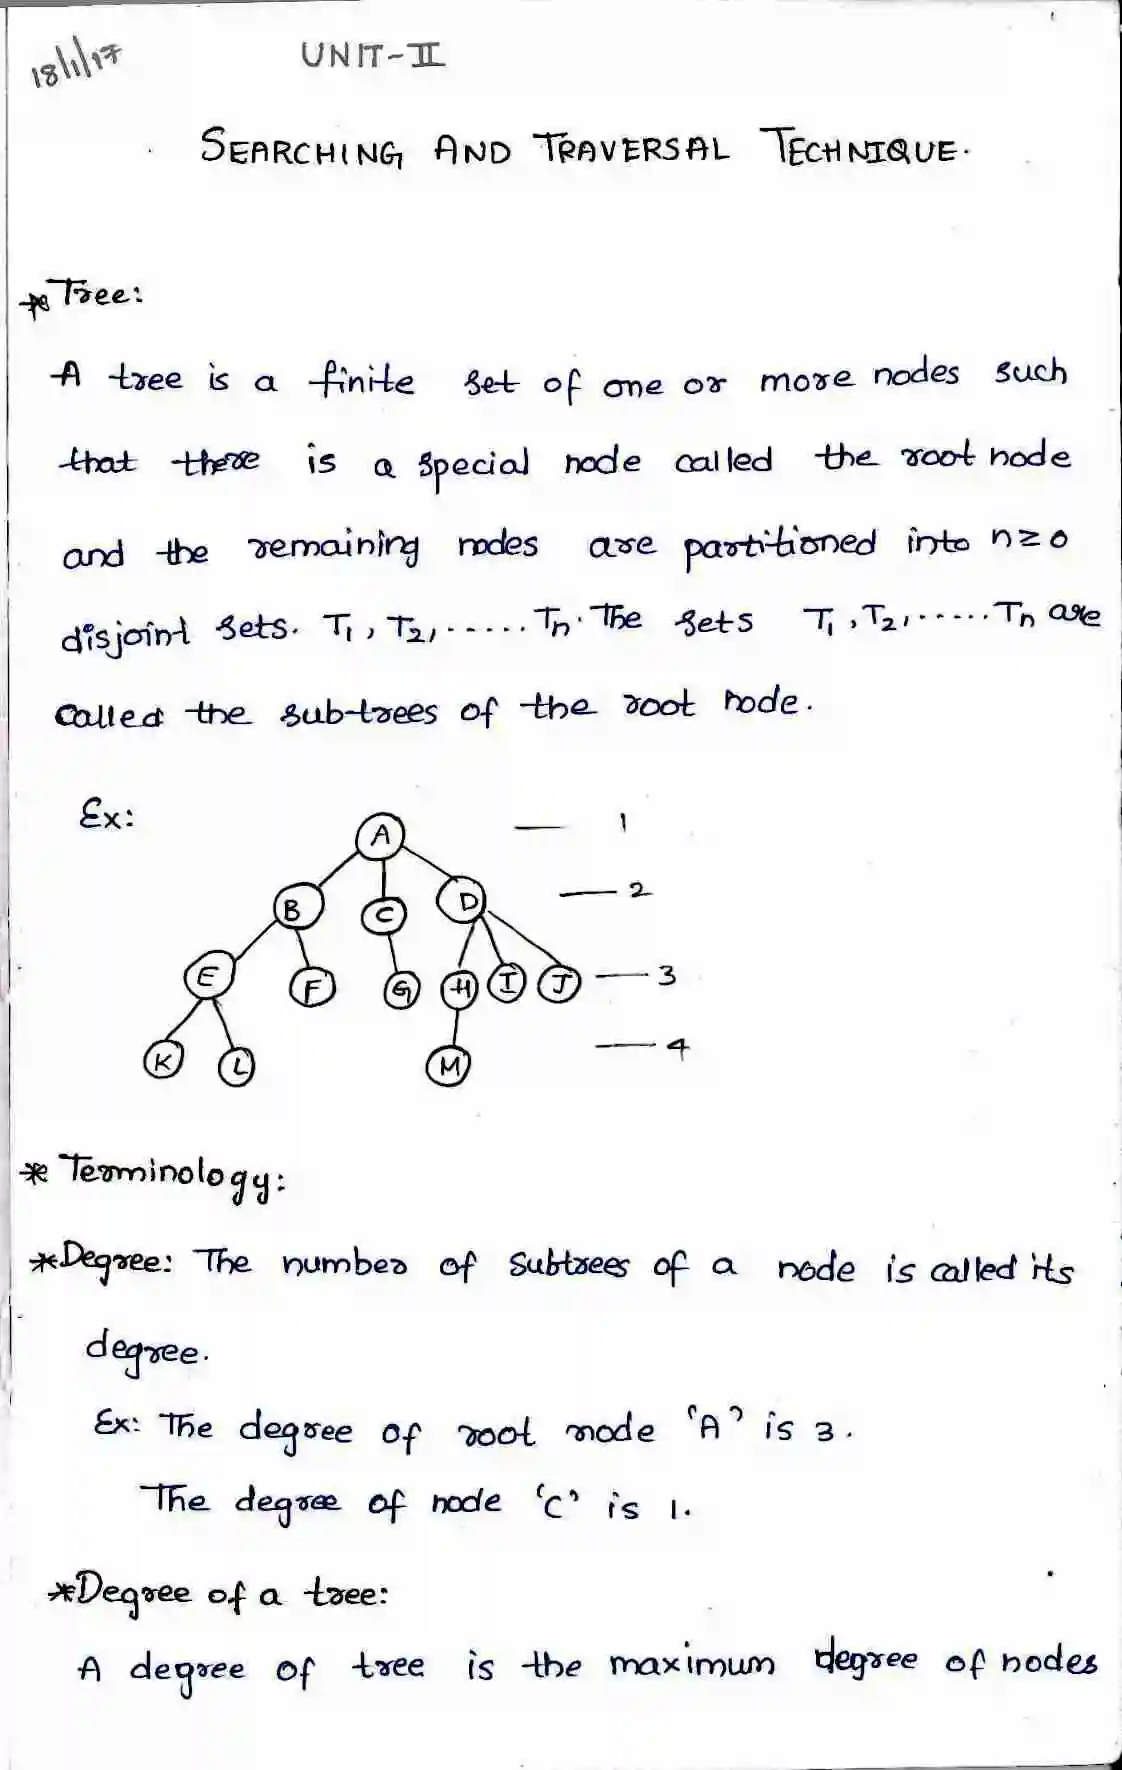 18/1/17
UNIT-II
SEARCHING AND TRAVERSAL TECHNIQUE.
* Tree:
A tree is a finite set of one or more nodes such
that there is a special node called the root node
and the remaining nodes are partitioned into n≥0
disjoint sets. T1, T2, ..... Tn. The sets T1, T2, ...... Tn are
called the sub-trees of the root node.
Ex:
A — 1
B C D — 2
E F G H I J — 3
K L M — 4
* Terminology:
* Degree: The number of subtrees of a node is called its
degree.
Ex: The degree of root node 'A' is 3.
The degree of node 'C' is 1.
* Degree of a tree:
A degree of tree is the maximum degree of nodes